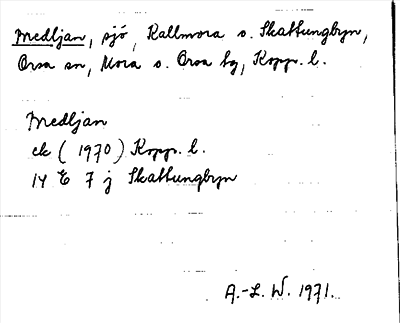 Medljan, sjö, Kallmora o. Skattungbyn,
Orsa sn, Mora o. Orsa tg, Kopp. l.
Medljan
ek (1970) Kopp. l.
14 E 7 j Skattungbyn
A.-L. W. 1971.